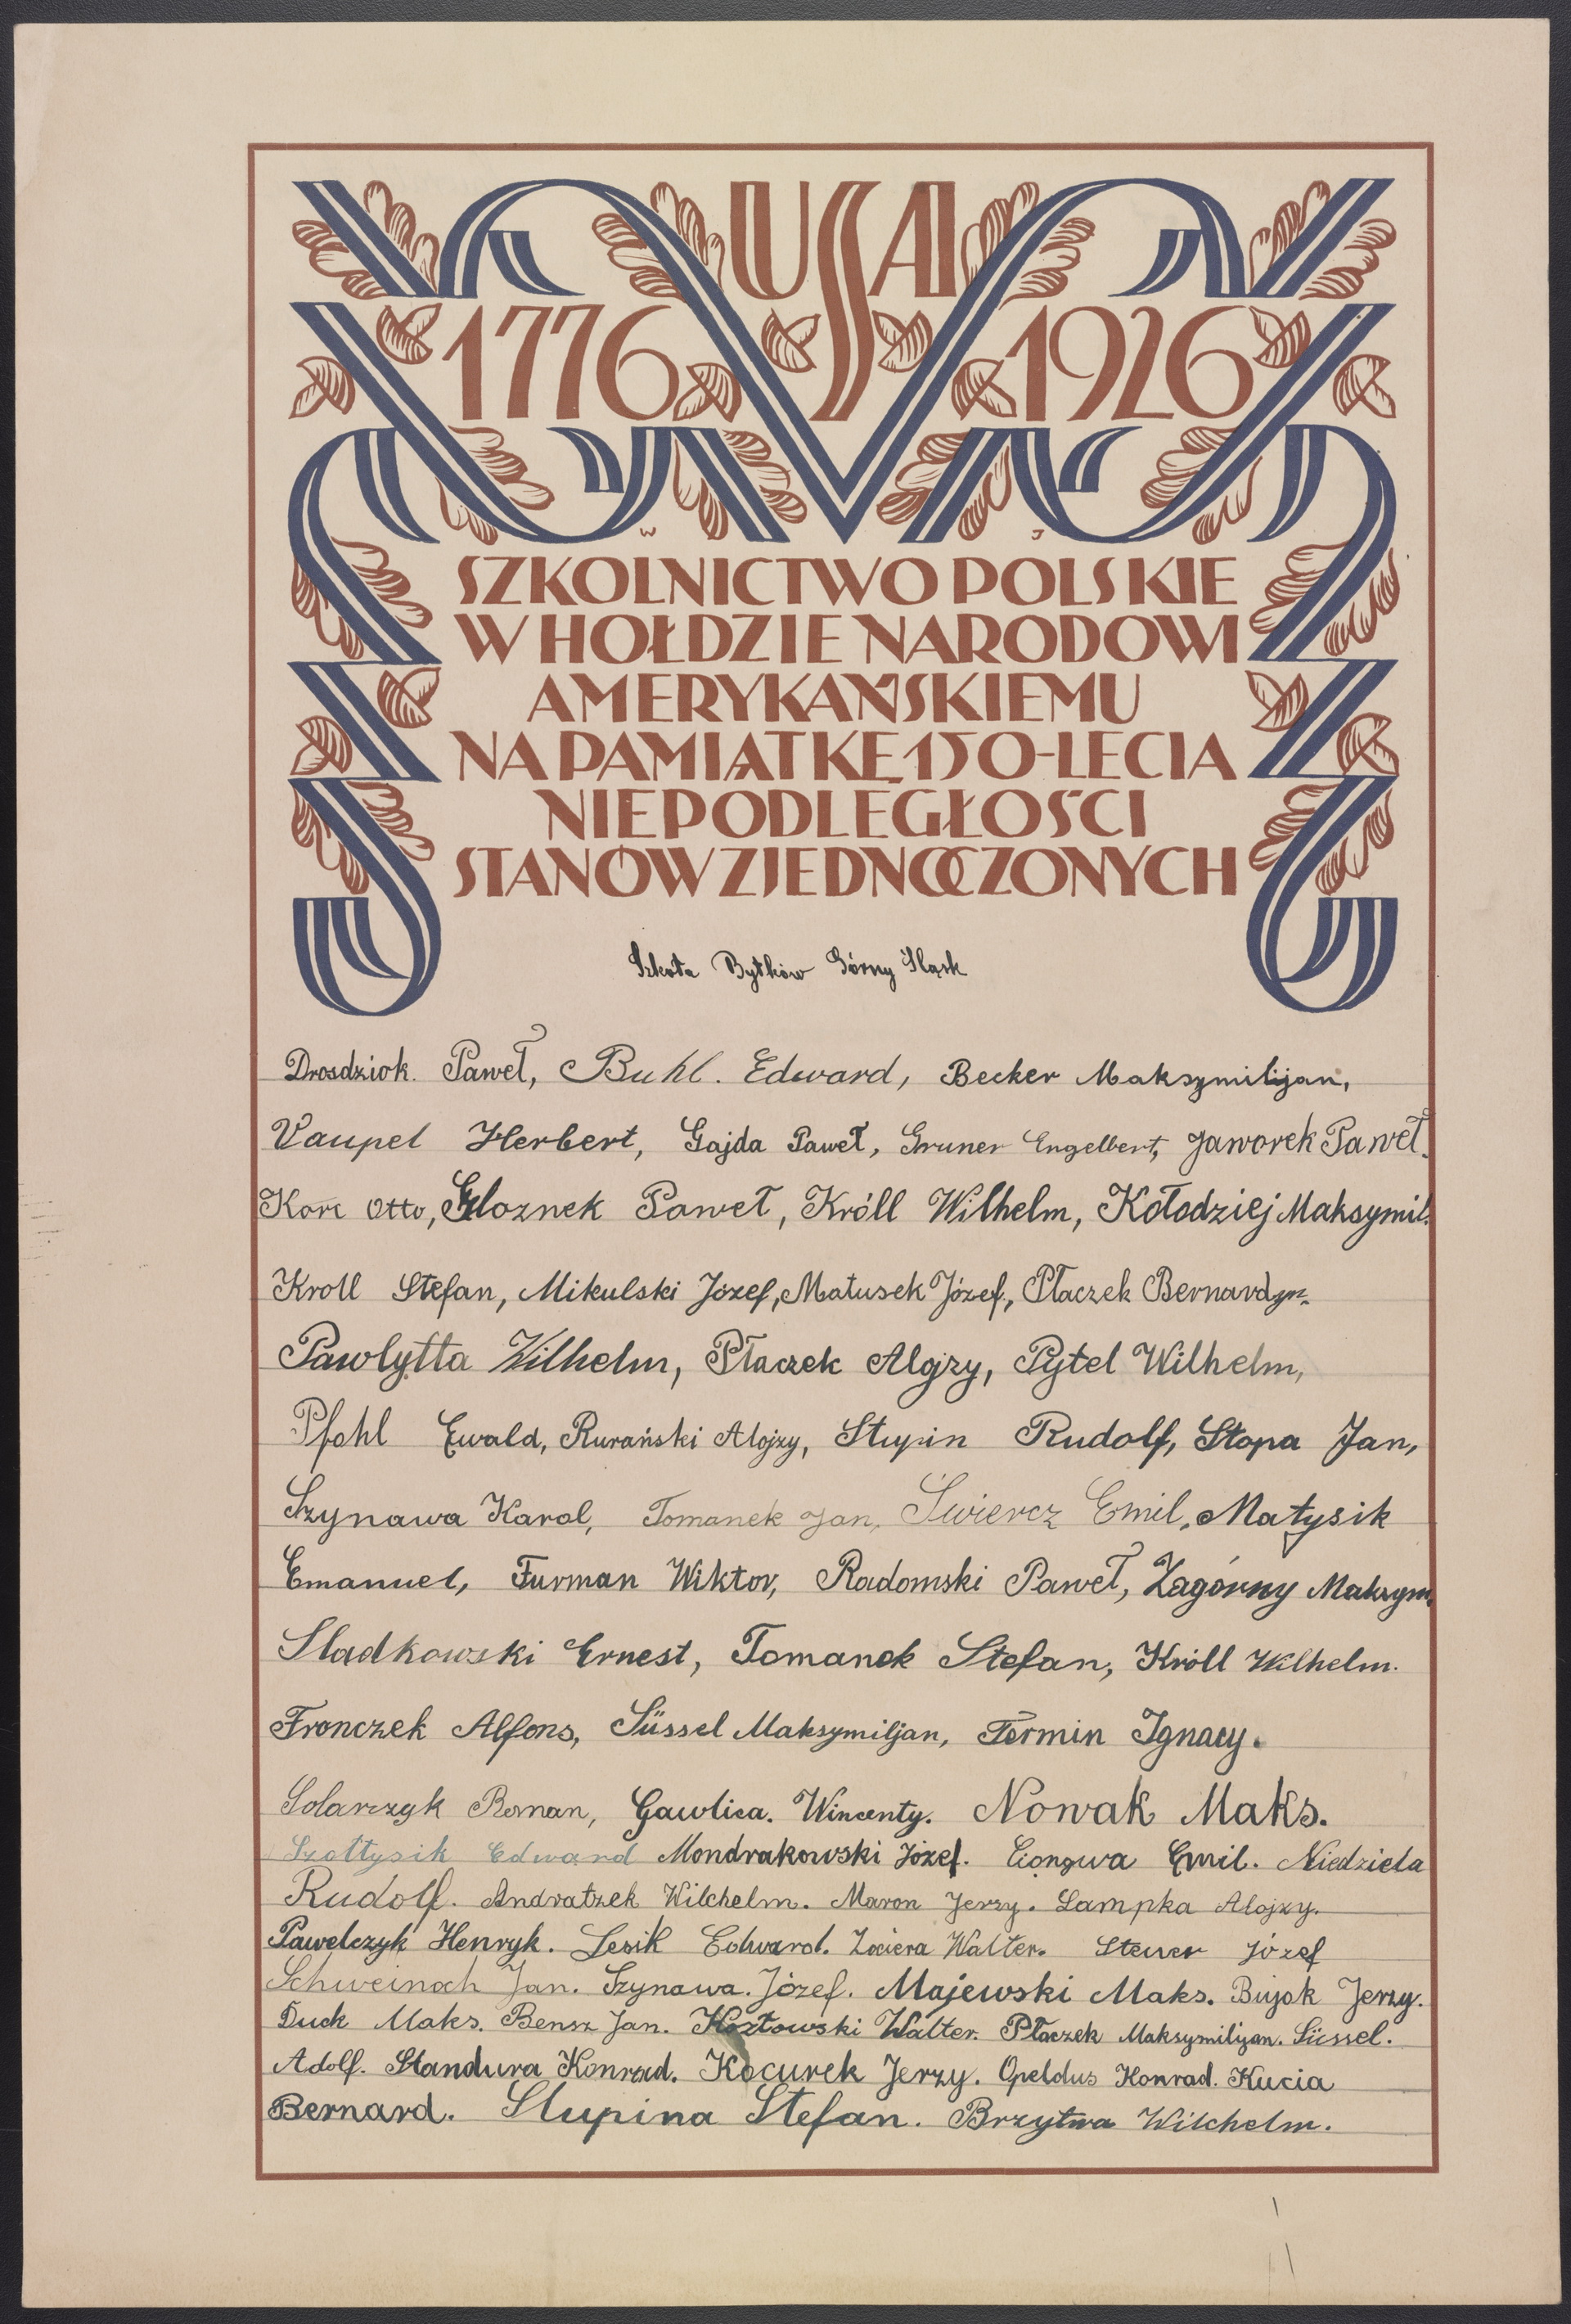 USA
1776 1926
W J
SZKOLNICTWO POLSKIE
W HOŁDZIE NARODOWI
AMERYKAŃSKIEMU
NA PAMIĄTKĘ 150-LECIA
NIEPODLEGŁOŚCI
STANÓW ZJEDNOCZONYCH
Szkoła Bytków Górny Śląsk
Drosdziok. Paweł, Buhl. Edward, Becker Maksymilijan,
Vaupel Herbert, Gajda Paweł, Gruner Engelbert, Jaworek Paweł.
Otto, Paweł, Króll Wilhelm, Kołodziej Maksymil.
Kroll Stefan, Mikulski Józef, Matusek Józef, Płaczek Bernardyn.
Pawlytta Wilhelm, Płaczek Alojzy, Pytel Wilhelm,
Pfohl Ewald, Rurański Alojzy, Stupin Rudolf, Stopa Jan,
Szynawa Karol, Tomanek Jan, Świercz Emil, Matysik
Emanuel, Furman Wiktor, Radomski Paweł, Zagórny Maksym.
Sladkowski Ernest, Tomanek Stefan, Króll Wilhelm.
Fronczek Alfons, Süssel Maksymiljan, Termin Ignacy.
Solarczyk Roman, Gawlica. Wincenty. Nowak Maks.
Szołtysik Edward Mondrakowski Józef. Emil. Niedziela
Rudolf. Andratzek Wilchelm. Maron Jerzy. Lampka Alojzy.
Pawelczyk Henryk. Lesik Edward. Walter. Steuer Józef
Schweinoch Jan. Szynawa. Józef. Majewski Maks. Bujok Jerzy.
Duck Maks. Bensz Jan. Kozłowski Walter. Płaczek Maksymilijan. Süssel.
Adolf. Standura Konrad. Kocurek Jerzy. Opeldus Konrad. Kucia
Bernard. Slupina Stefan. Brzytwa Wilchelm.